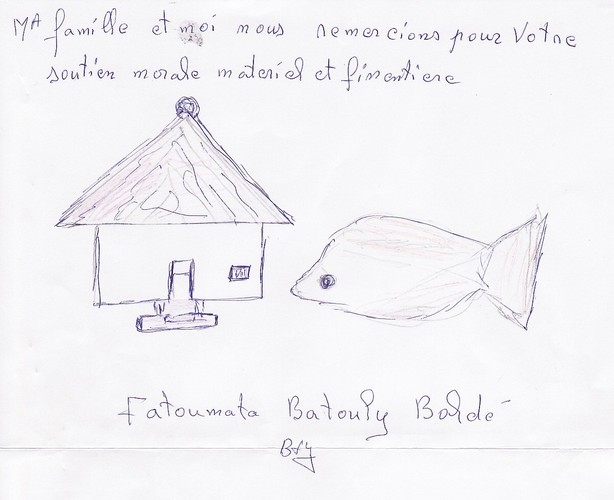 MA famille et moi nous remercions pour Votre
soutien morale materiel et finantiere
Fatoumata Batouly Baldé